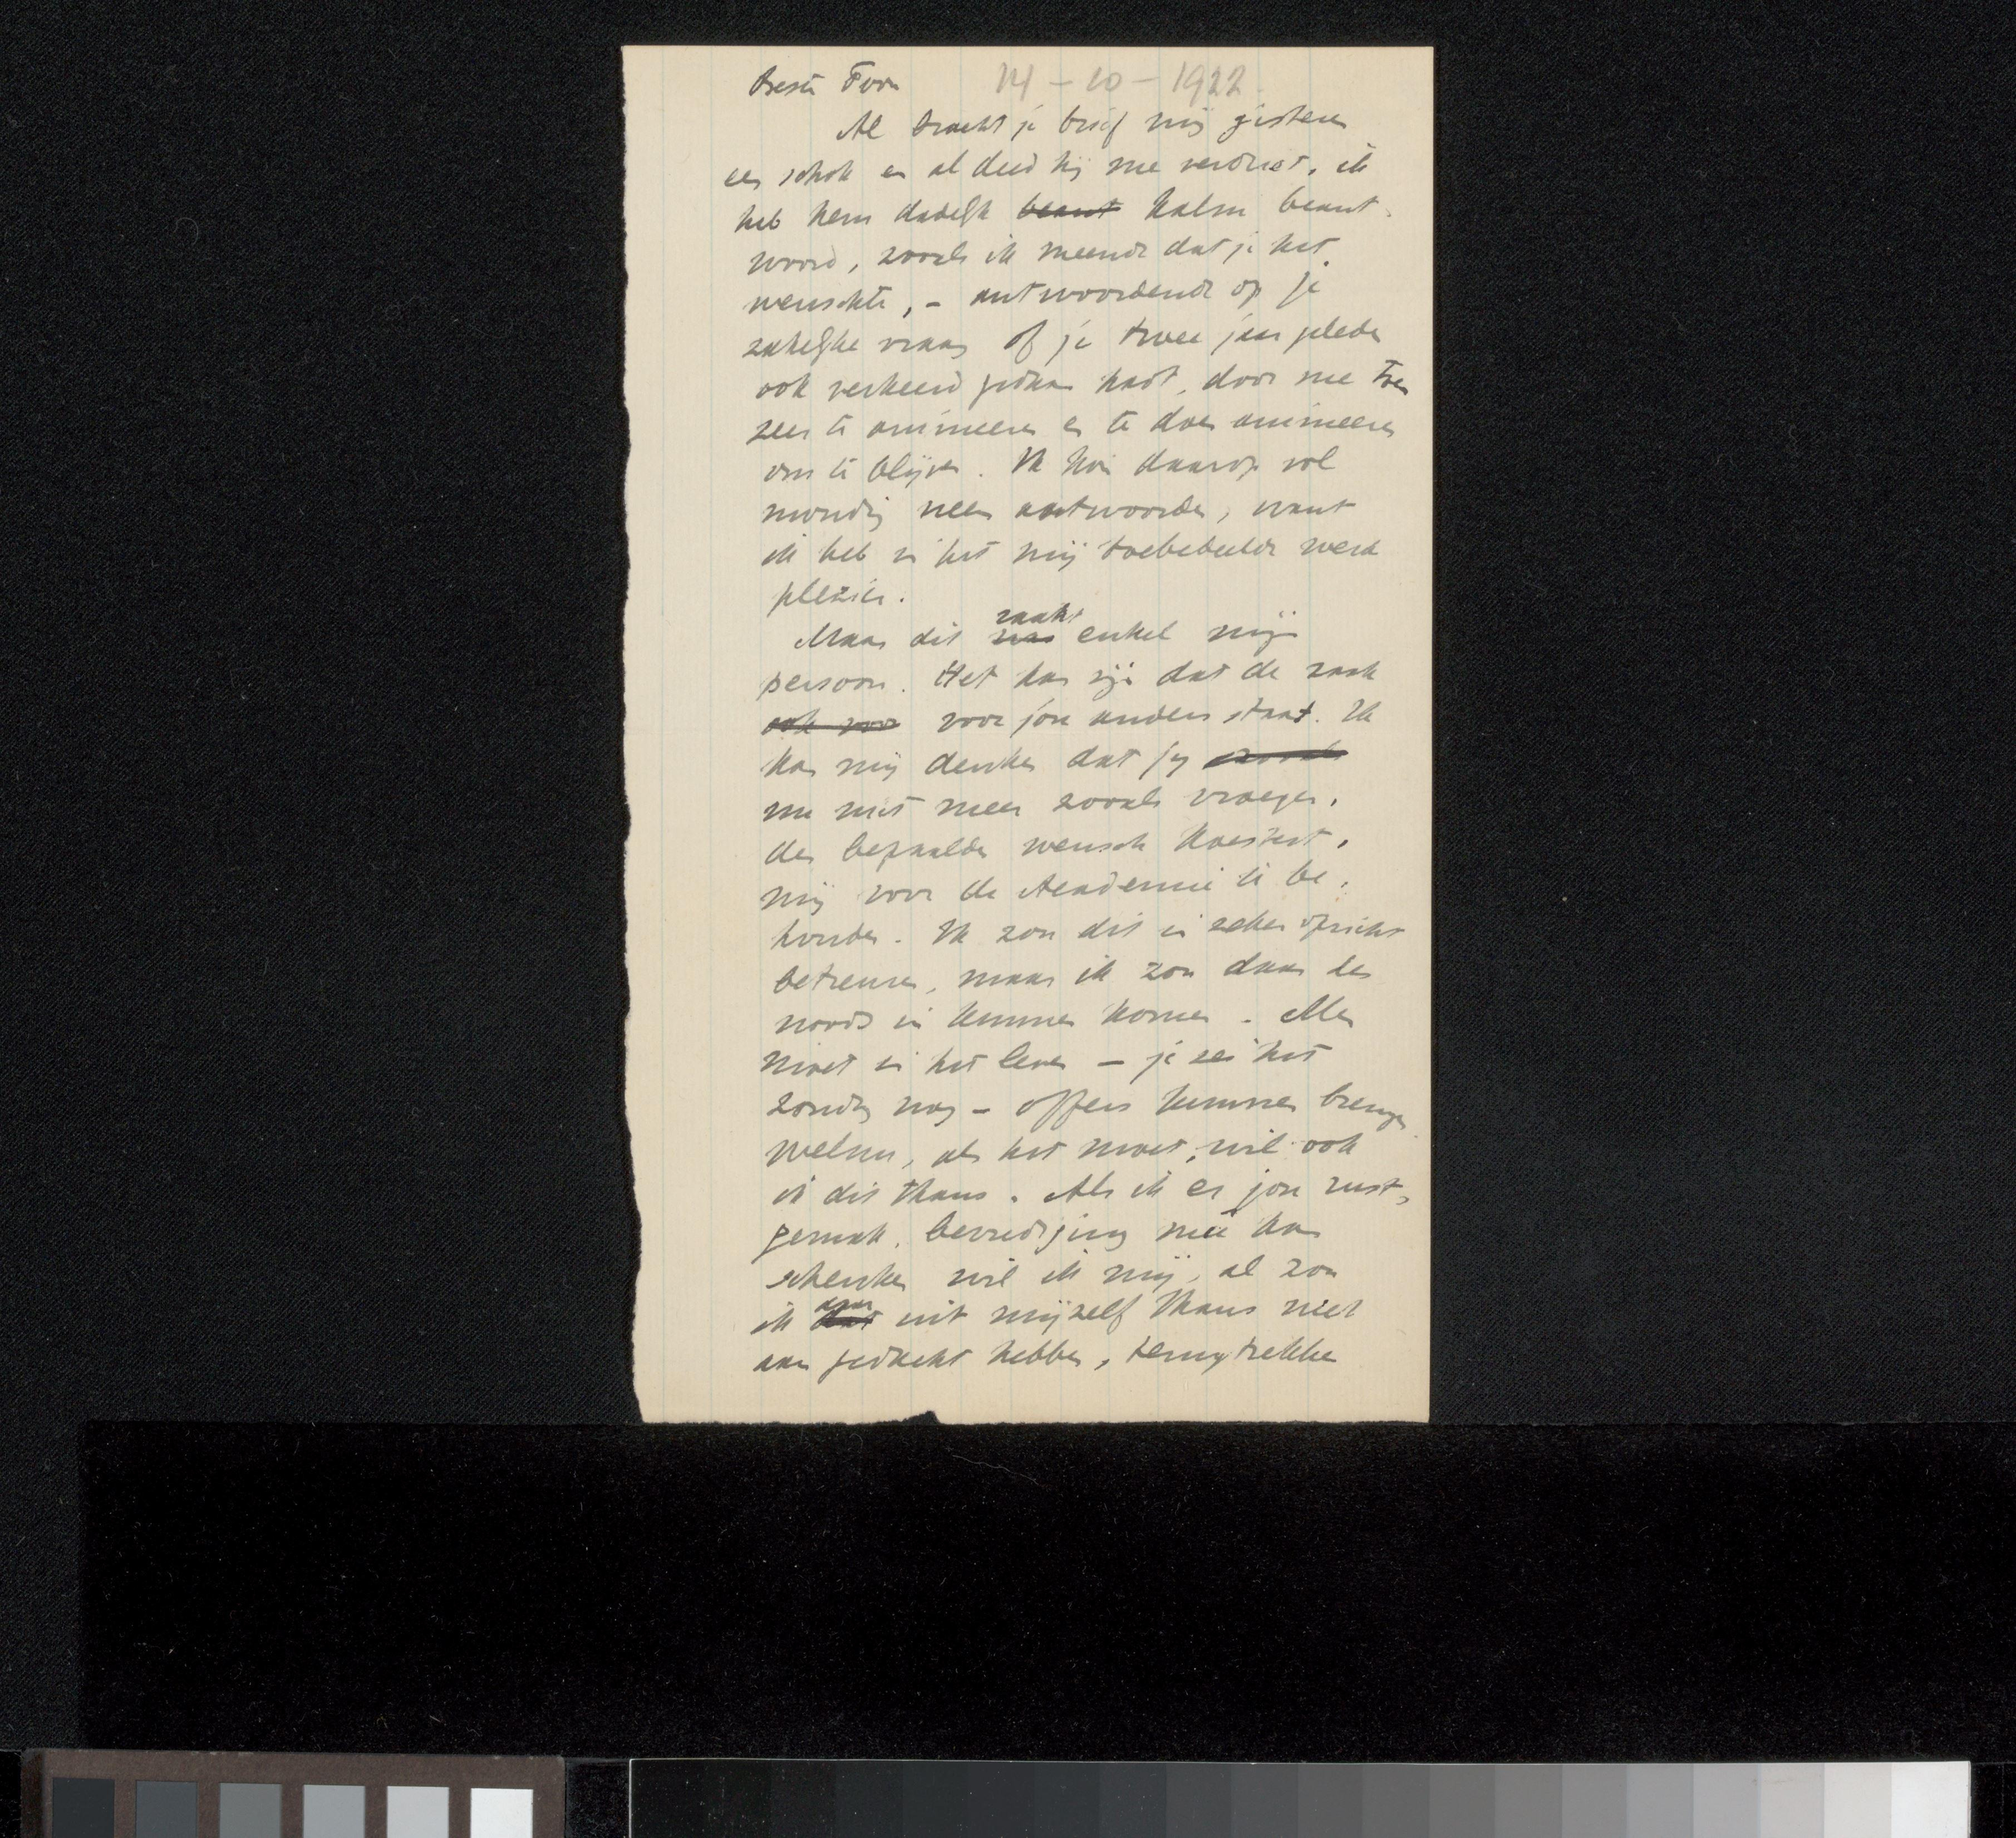 Beste Toon 14-10-1922
Al bracht je brief mij gisteren
een schok en al deed hij me verdriet, ik
heb hem dadelijk beant kalm beant-
woord, zooals ik meende dat je het
wenschte, - antwoordende op je
zakelijke vraag of je twee jaar geleden
ook verkeerd gedaan hadt, door me toen
zeer te animeeren en te doen animeeren
om te blijven. Ik kon daarop vol
mondig neen antwoorden, want
ik heb in het mij toebedeelde werk
plezier.
Maar dit was raakt enkel mijn
persoon. Het kan zijn dat de zaak
ook voor voor jou anders staat. Ik
kan mij denken dat jij zooals
nu niet meer zooals vroeger,
den bepaalden wensch koestert,
mij voor de Academie te be-
houden. Ik zou dit in zeker opzicht
betreuren, maar ik zou daar des
noods in kunnen komen. Men
moet in het leven - je zei het
Zondag nog - offers kunnen brengen
welnu, als het moet, wil ook
ik dit thans. Als ik er jou rust,
gemak, bevrediging mee kan
schenken wil ik mij, al zou
ik dat daar uit mijzelf thans niet
aan gedacht hebben, terugtrekken